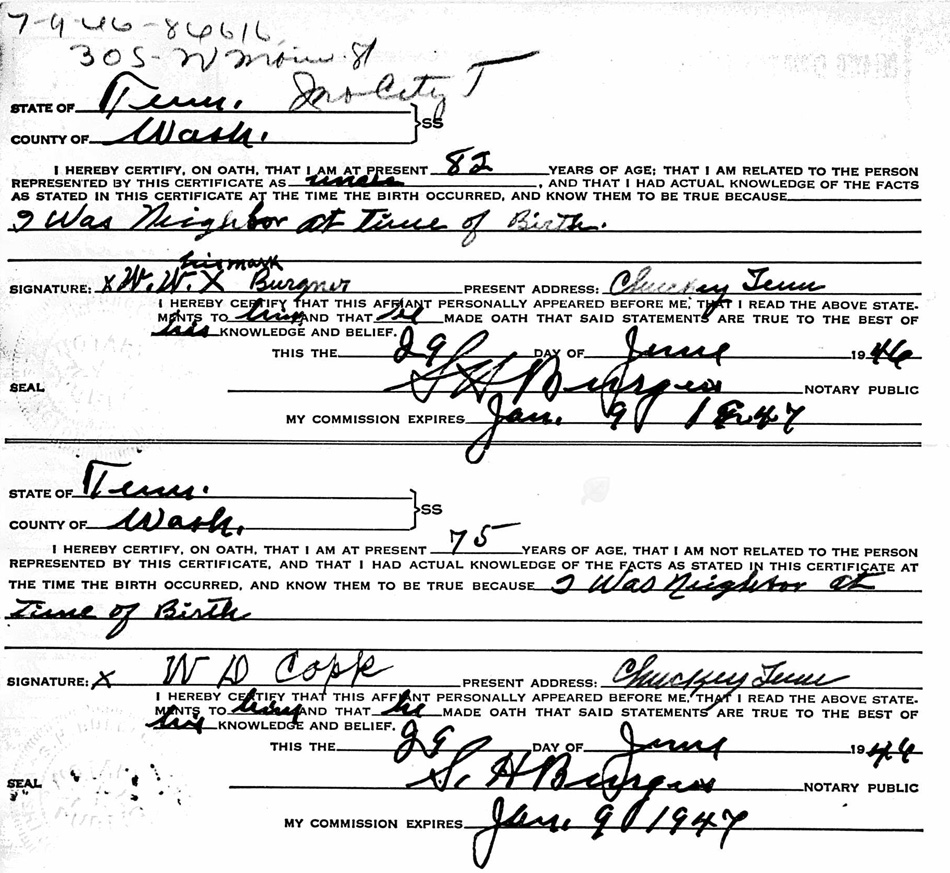 7-9-46-86616
305-W Main St
STATE OF Tenn. Jno City T
COUNTY OF Wash. } SS
I HEREBY CERTIFY, ON OATH, THAT I AM AT PRESENT 82 YEARS OF AGE; THAT I AM RELATED TO THE PERSON
REPRESENTED BY THIS CERTIFICATE AS uncle, AND THAT I HAD ACTUAL KNOWLEDGE OF THE FACTS
AS STATED IN THIS CERTIFICATE AT THE TIME THE BIRTH OCCURRED, AND KNOW THEM TO BE TRUE BECAUSE
I Was Neighbor at time of Birth.
his mark
SIGNATURE: x W. W. X Burgner PRESENT ADDRESS: Chuckey Tenn
I HEREBY CERTIFY THAT THIS AFFIANT PERSONALLY APPEARED BEFORE ME, THAT I READ THE ABOVE STATE-
MENTS TO him AND THAT he MADE OATH THAT SAID STATEMENTS ARE TRUE TO THE BEST OF
his KNOWLEDGE AND BELIEF.
THIS THE 29 DAY OF June 1946
SEAL S H Burgner NOTARY PUBLIC
MY COMMISSION EXPIRES Jan. 9 1947
STATE OF Tenn.
COUNTY OF Wash. } SS
I HEREBY CERTIFY, ON OATH, THAT I AM AT PRESENT 75 YEARS OF AGE, THAT I AM NOT RELATED TO THE PERSON
REPRESENTED BY THIS CERTIFICATE, AND THAT I HAD ACTUAL KNOWLEDGE OF THE FACTS AS STATED IN THIS CERTIFICATE AT
THE TIME THE BIRTH OCCURRED, AND KNOW THEM TO BE TRUE BECAUSE I Was Neighbor at
time of Birth
SIGNATURE: x W D Copp PRESENT ADDRESS: Chuckey Tenn
I HEREBY CERTIFY THAT THIS AFFIANT PERSONALLY APPEARED BEFORE ME, THAT I READ THE ABOVE STATE-
MENTS TO him AND THAT he MADE OATH THAT SAID STATEMENTS ARE TRUE TO THE BEST OF
his KNOWLEDGE AND BELIEF.
THIS THE 29 DAY OF June 1946
SEAL S. H Burgner NOTARY PUBLIC
MY COMMISSION EXPIRES Jan. 9 1947